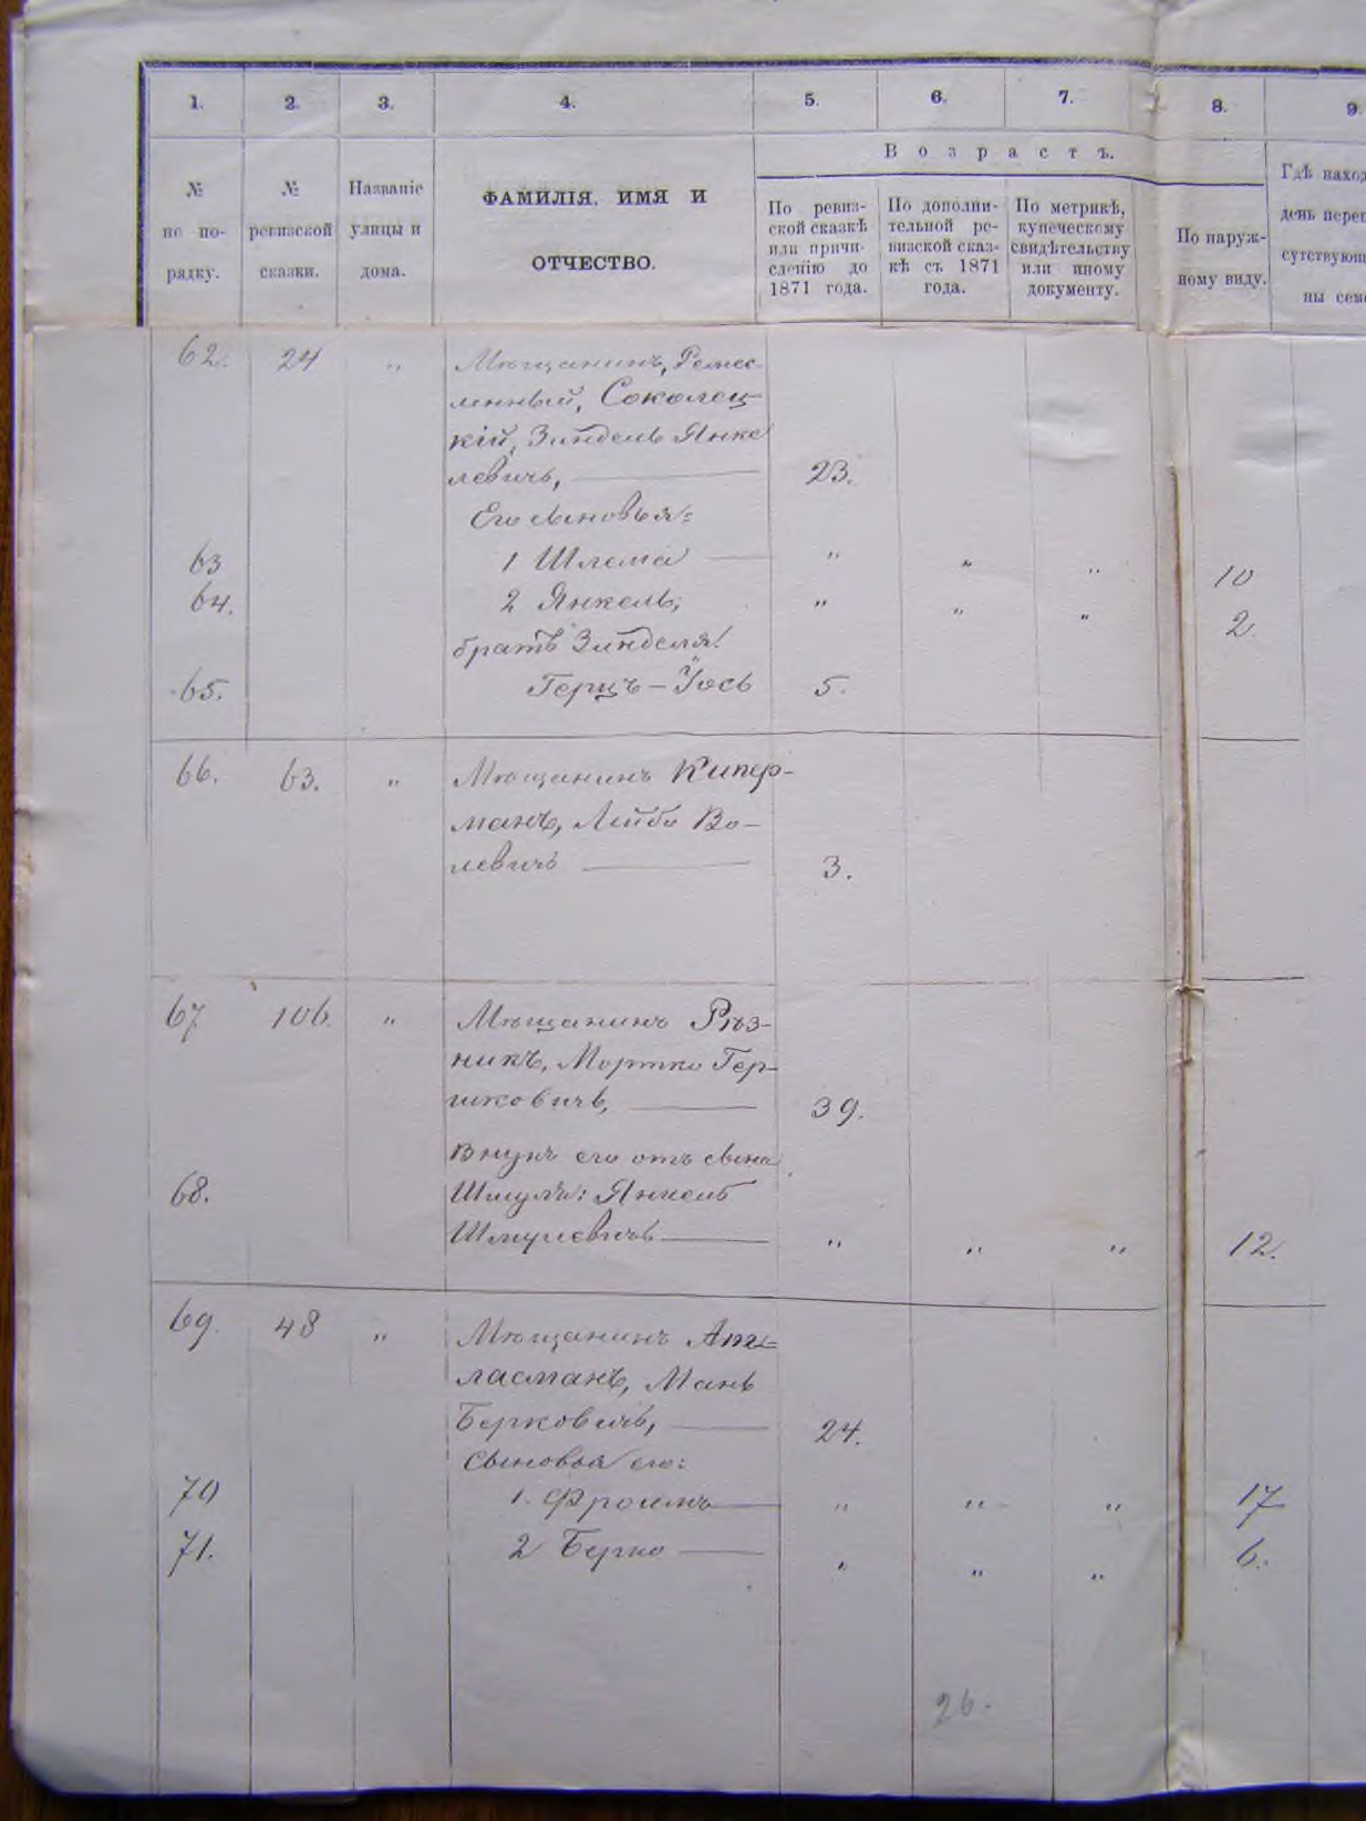 1. 2. 3. 4. 5. 6. 7. 8. 9.
Возрастъ.
№ по порядку.
№ ревизской сказки.
Названіе улицы и дома.
ФАМИЛІЯ, ИМЯ И ОТЧЕСТВО.
По ревизской сказкѣ или причисленію до 1871 года.
По дополнительной ревизской сказкѣ съ 1871 года.
По метрикѣ, купеческому свидѣтельству или иному документу.
По наружному виду.
Гдѣ наход
день переп
сутствующ
ны сем
62. 24 " Мѣщанинъ, Ремес-
ленный, Соколец-
кій, Зиндель Янке
левичъ, 23.
Его сыновья:
63 1 Шлема " " " 10
64. 2 Янкель, " " " 2.
братъ Зинделя:
65. Герцъ-Іось 5.
66. 63. " Мѣщанинъ Кипер-
манъ, Лейба Во-
левичъ 3.
67 106. " Мѣщанинъ Рѣз-
никъ, Мортко Гер-
шковичъ, 39.
Внукъ его отъ сына
68. Шмуля: Янкель
Шмулевичъ " " " 12.
69. 48 " Мѣщанинъ Ат-
ласманъ, Мань
Берковичъ, 24.
Сыновья его:
70 1. Фроимъ " " " 17
71. 2 Берко " " " 6.
26.